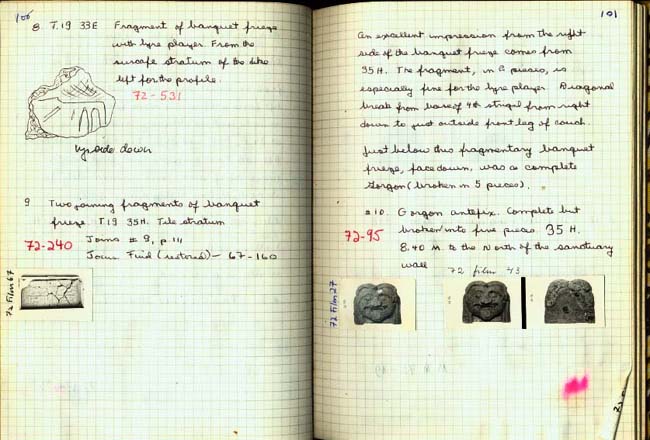 100
8. T.19 33E Fragment of banquet frieze
with lyre player. From the
surcafe stratum of the dike
left for the profile.
72-531
upside down
9 Two joining fragments of banquet
frieze T19 35H. Tile stratum
72-240
Joins # 9, p. 111
Joins Find (restored) - 67-160
72 Film 67
101
An excellent impression from the right
side of the banquet frieze comes from
35 H. The fragment, in 2 pieces, is
especially fine for the lyre player. Diagonal
break from base of 4th strigil from right
down to just outside front leg of couch.
Just below this fragmentary banquet
frieze, face down, was a complete
Gorgon (broken in 5 pieces).
#10. Gorgon antefix. Complete but
72-95
broken into five pieces 35 H.
8.40 M to the North of the sanctuary
wall
72 film 43
72 Film 27